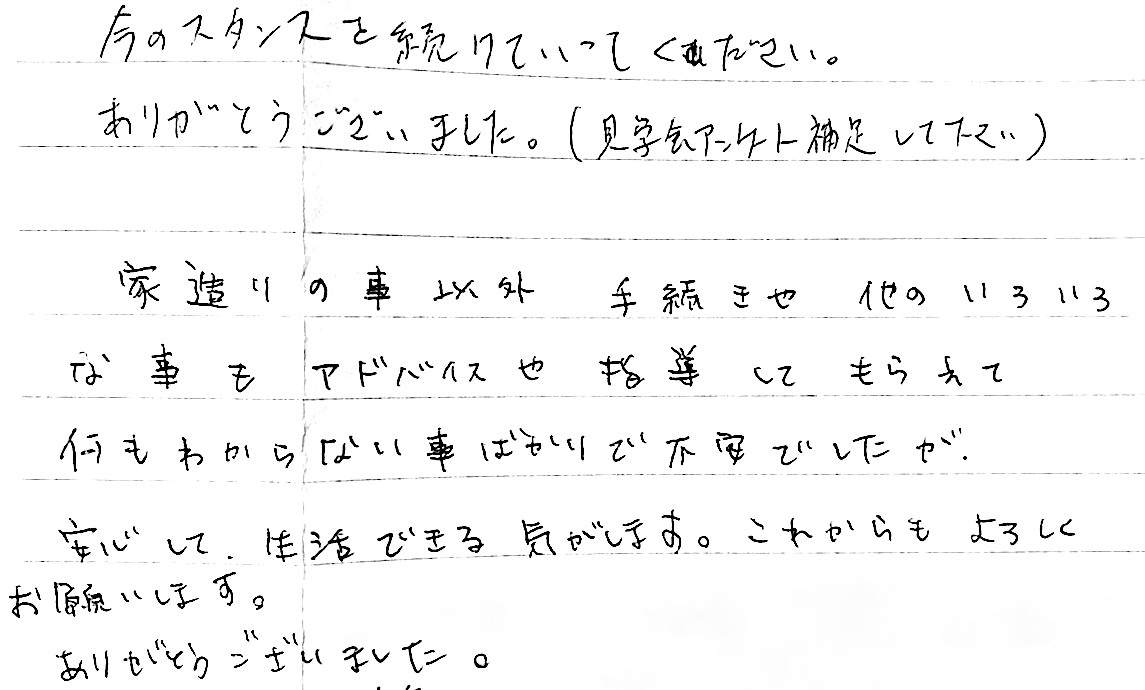 今のスタンスを続けていってください。
ありがとうございました。(見学会アンケート補足して下さい)
家造りの事以外 手続きや 他のいろいろ
な事も アドバイスや 指導して もらえて
何もわからない事ばかりで不安でしたが、
安心して、生活できる気がします。これからも よろしく
お願いします。
ありがとうございました。